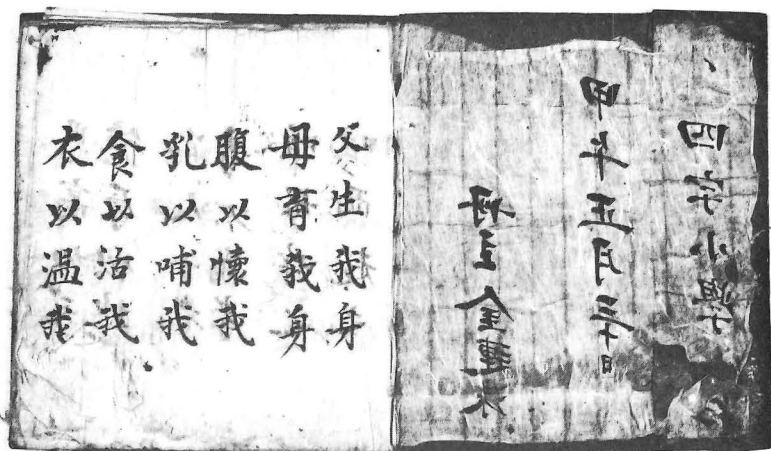 四字小學
甲午正月三十日
冊主金
父生我身
母育我身
腹以懷我
乳以哺我
食以活我
衣以温我